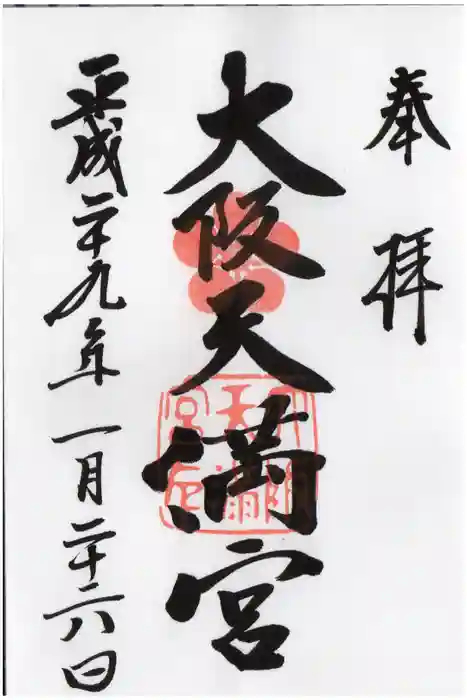 奉拝
大阪天満宮
平成二十九年一月二十六日